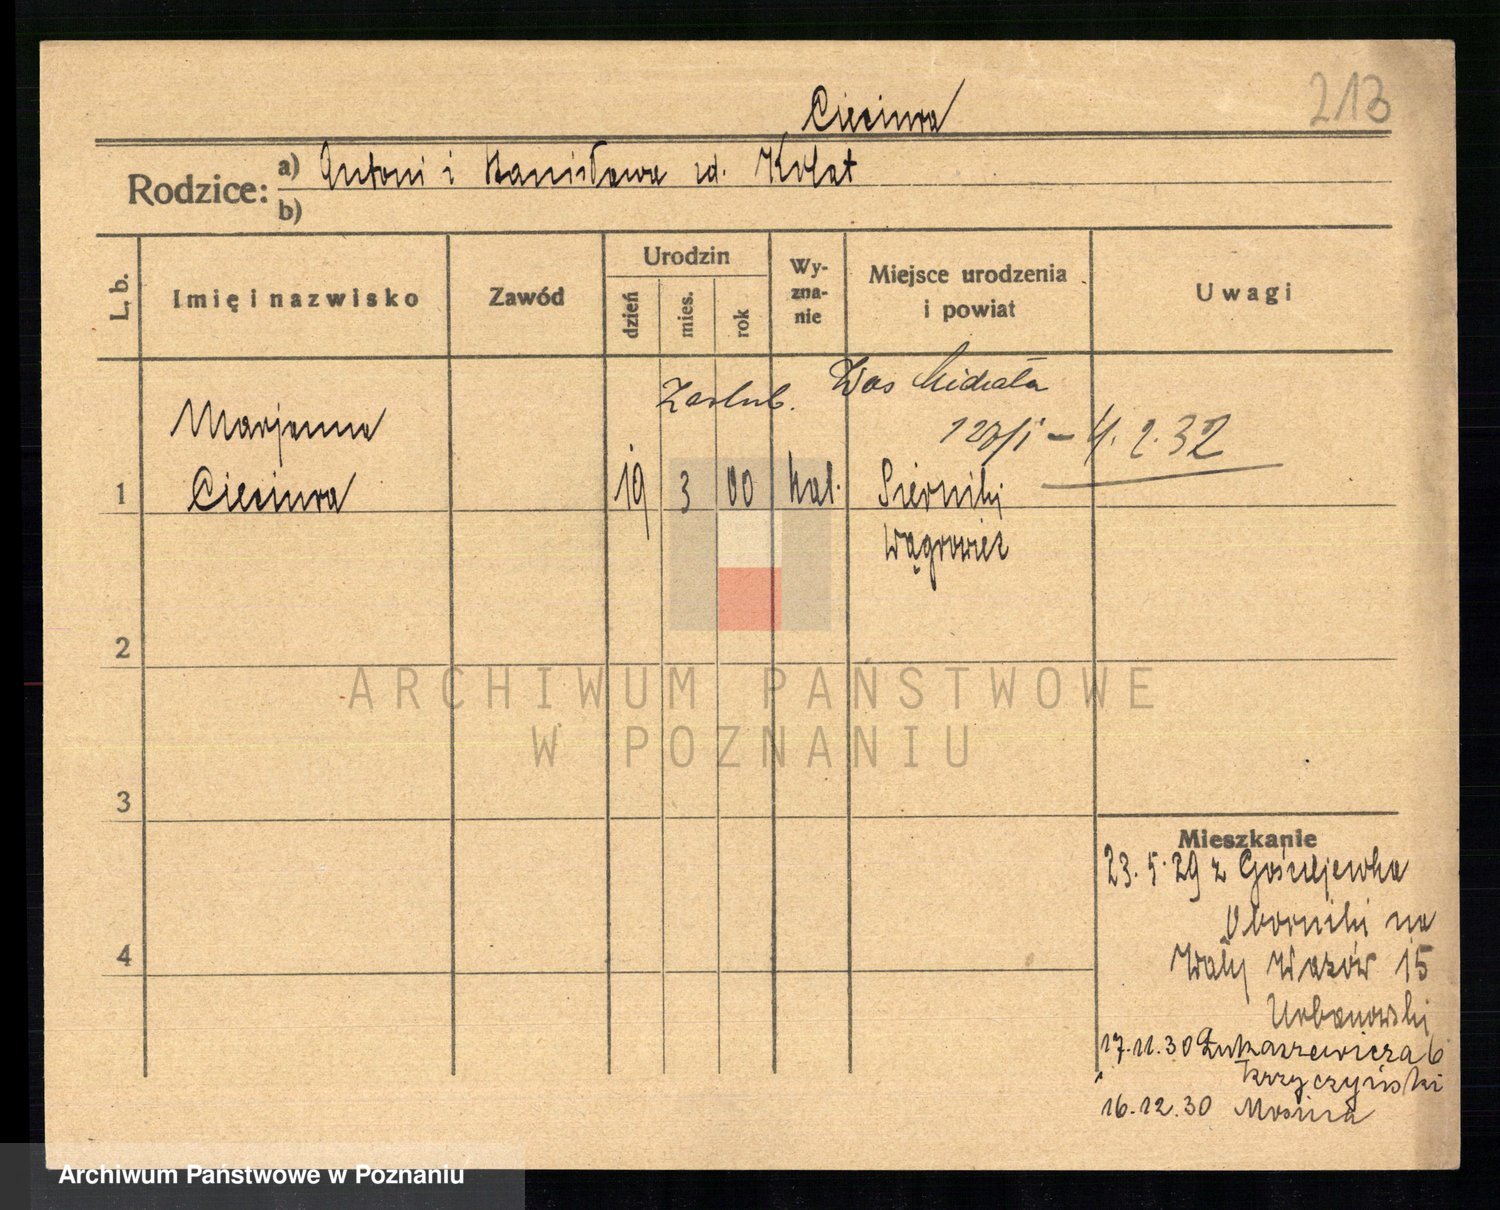 213
Cieciura
Rodzice: a) Antoni i Stanisława zd. Kolat
b)
L. b.
Imię i nazwisko
Zawód
Urodzin
dzień
mies.
rok
Wy-
zna-
nie
Miejsce urodzenia
i powiat
Uwagi
Zaślub. Was Michała
4. 2. 32
Marjanna
1 Cieciura 19 3 00 kat. Sierniki
Wągrowiec
2
3
4
Mieszkanie
23. 5. 29 z Gościejewka
Oborniki na
Wały Wazów 15
Urbanowski
17. 11. 30 Łukaszewicza 6
Krzyczyński
16. 12. 30 Mosina
ARCHIWUM PAŃSTWOWE
W POZNANIU
Archiwum Państwowe w Poznaniu